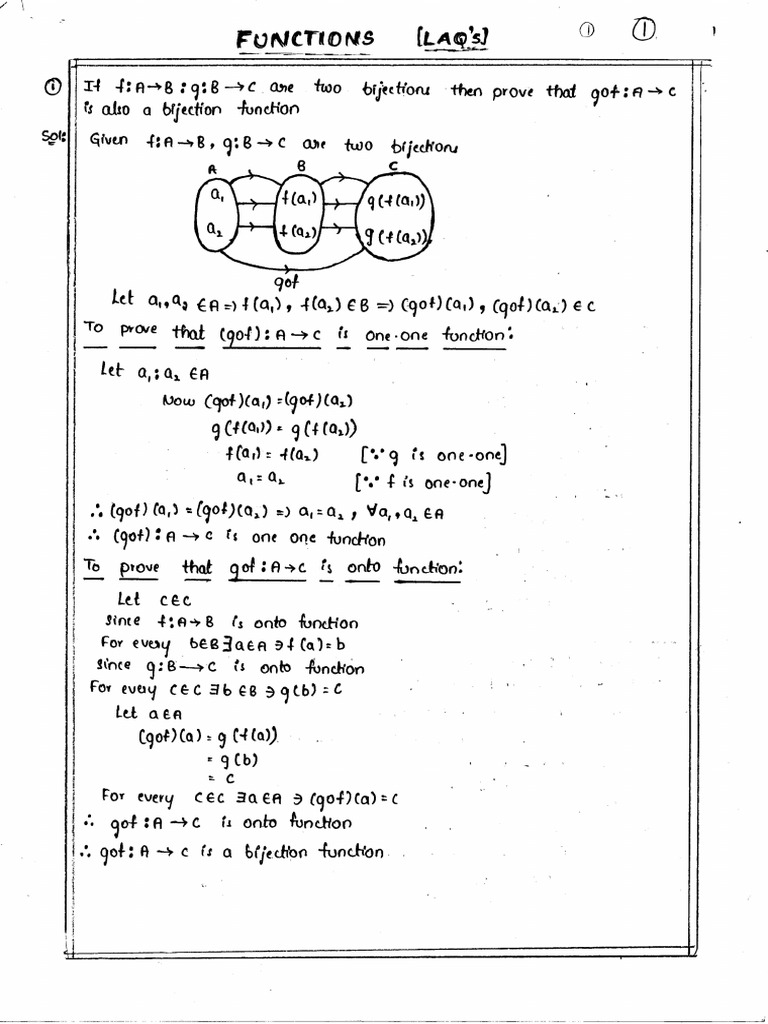 FUNCTIONS [LAQ's] ① ① 1
① If f:A→B ; g:B→C are two bijections then prove that gof:A→C
is also a bijection function
Sol: Given f:A→B, g:B→C are two bijections
A B C
a₁ f(a₁) g(f(a₁))
a₂ f(a₂) g(f(a₂))
gof
Let a₁,a₂ ∈A ⇒ f(a₁), f(a₂) ∈B ⇒ (gof)(a₁), (gof)(a₂) ∈ C
To prove that (gof):A→C is one-one function:
Let a₁;a₂ ∈A
Now (gof)(a₁) = (gof)(a₂)
g(f(a₁)) = g(f(a₂))
f(a₁) = f(a₂) [∵ g is one-one]
a₁ = a₂ [∵ f is one-one]
∴ (gof)(a₁) = (gof)(a₂) ⇒ a₁=a₂, ∀a₁,a₂ ∈A
∴ (gof):A→C is one one function
To prove that gof:A→C is onto function:
Let c∈C
Since f:A→B is onto function
For every b∈B∃a∈A∋f(a)=b
Since g:B→C is onto function
For every c∈C ∃b∈B ∋ g(b) = C
Let a∈A
(gof)(a) = g(f(a))
= g(b)
= c
For every c∈C ∃a∈A ∋ (gof)(a) = c
∴ gof:A→C is onto function
∴ gof:A→C is a bijection function